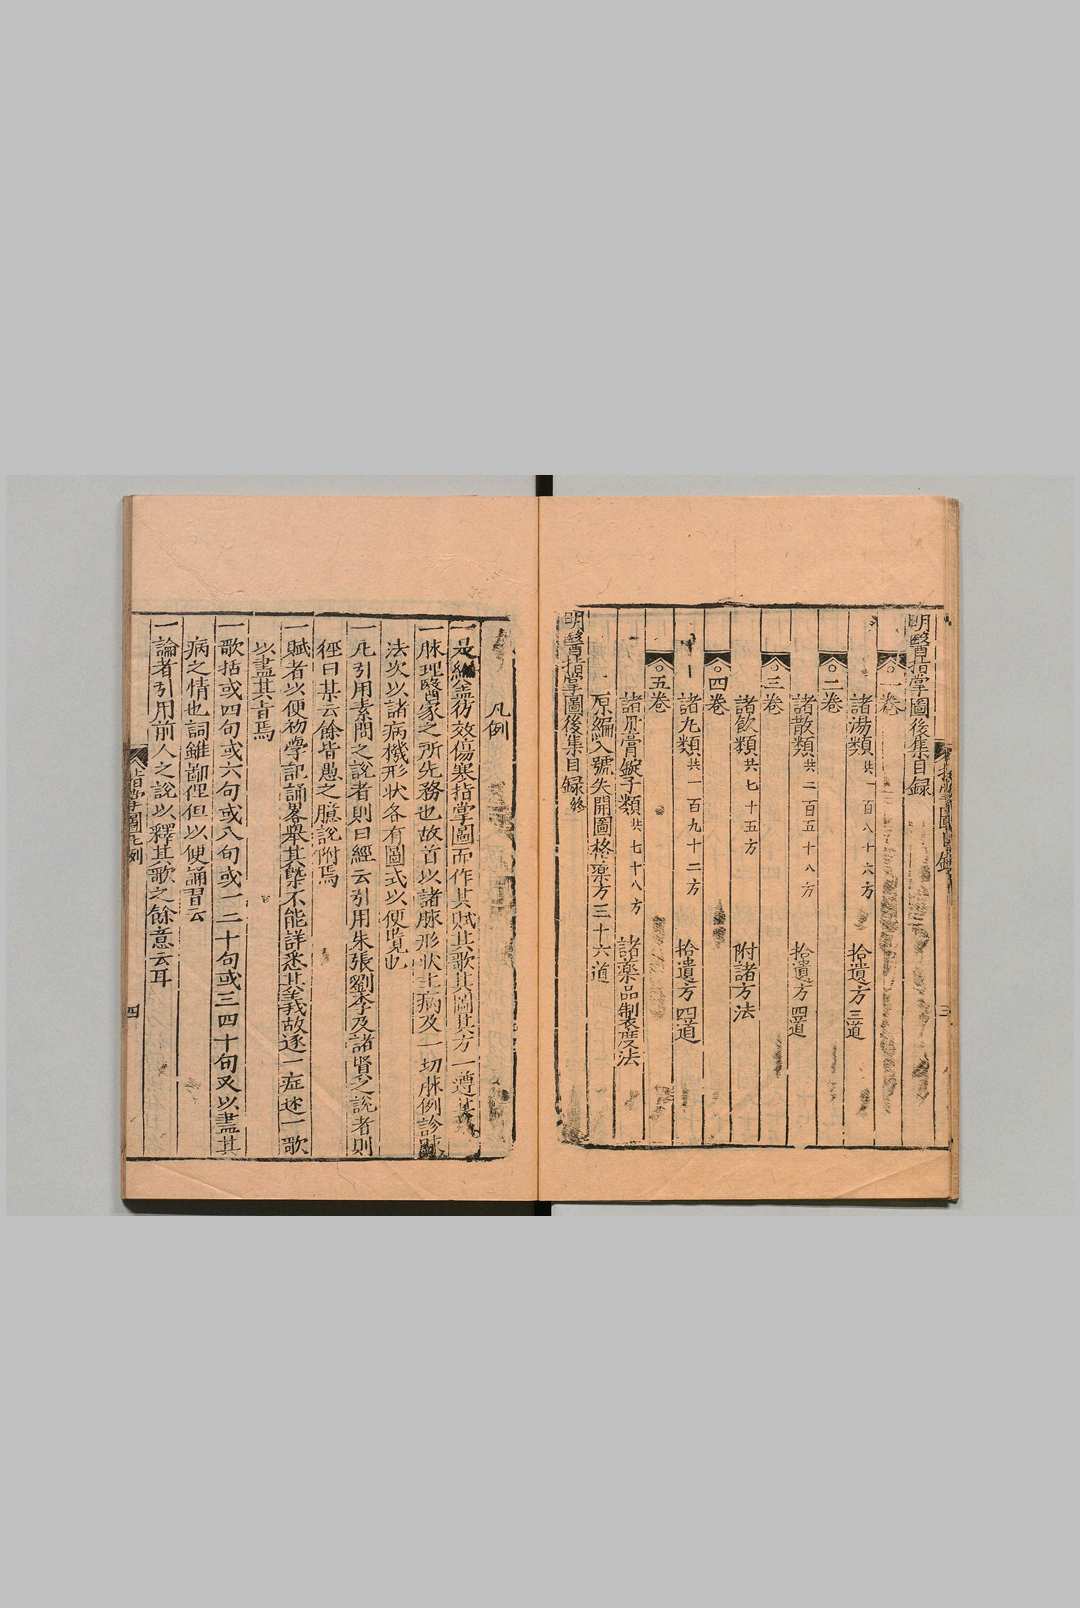 明醫指掌圖後集目錄
一卷
諸湯類共一百八十六方 拾遺方三道
二卷
諸散類共二百五十八方 拾遺方四道
三卷
諸飲類共七十五方 附諸方法
四卷
諸丸類共一百九十二方 拾遺方四道
五卷
諸丹膏錠子類共七十八方 諸藥品制製度法
原編入號失開圖格藥方三十六道
明醫指掌圖後集目録終
凡例
一是編盖彷效傷寒指掌圖而作其賦其歌其圖其方一遵其
一脉理醫家之所先務也故首以諸脉形狀主病及一切脉例診
法次以諸病機形狀各有圖式以便覧也
一凡引用素問之說者則曰經云引用朱張劉李及諸賢之說者則
徑曰某云餘皆愚之臆說附焉
一賦者以便初學記誦畧舉其槩不能詳悉其義故逐一症述一歌
以盡其旨焉
一歌括或四句或六句或八句或一二十句或三四十句又以盡其
病之情也詞雖鄙俚但以便誦習云
一論者引用前人之說以釋其歌之餘意云耳
指掌圖凡例
四